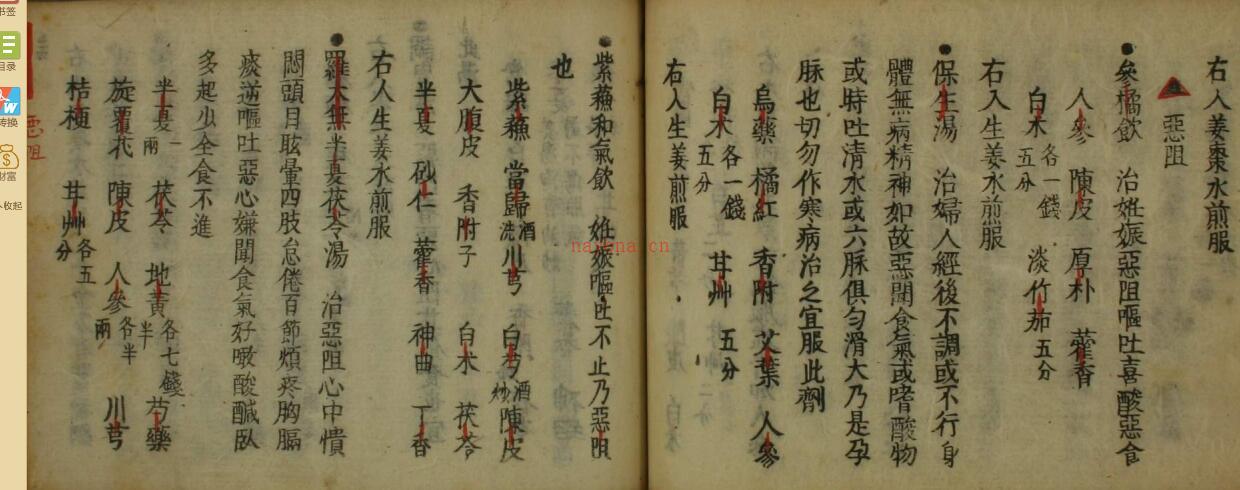 右入姜棗水煎服
惡阻
參橘飲 治姙娠惡阻嘔吐喜酸惡食
人參 陳皮 厚朴 藿香
白术 各一錢五分 淡竹茹 五分
右入生姜水煎服
保生湯 治婦人經後不調或不行身
體無病精神如故惡聞食氣或嗜酸物
或時吐清水或六脉俱匀滑大乃是孕
脉也切勿作寒病治之宜服此劑
烏藥 橘紅 香附 艾葉 人參
白术 各一錢五分 甘艸 五分
右入生姜煎服
紫蘓和氣飲 姙娠嘔吐不止乃惡阻
也
紫蘓 當歸 酒洗 川芎 白芍 酒炒 陳皮
大腹皮 香附子 白术 茯苓
半夏 砂仁 藿香 神曲 丁香
右人生姜水煎服
羅太無半夏茯苓湯 治惡阻心中憒
悶頭目眩暈四肢怠倦百節煩疼胸膈
痰逆嘔吐惡心嫌聞食氣好噉酸鹹臥
多起少全食不進
半夏 一兩 茯苓 地黃 各七錢半 芍藥
旋覆花 陳皮 人參 各半兩 川芎
桔梗 甘艸 各五分
惡阻
书签
目录
转换
财富
收起